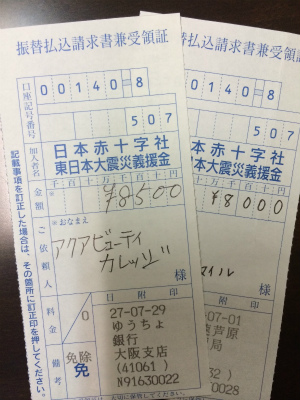 振替払込請求書兼受領証
口座記号番号
00140=8
507
加入者名
日本赤十字社
東日本大震災義援金
金額
千百十万千百十円
¥8500
ご依頼人
※おなまえ
アクアビューティ
カレッジ
様
料金
0
備考
免除
免
日附印
27-07-29
ゆうちょ
銀行
大阪支店
(41061)
N91630022
記載事項を訂正した場合は、その箇所に訂正印を押してください。
振替払込請求書兼受領証
00140=8
507
日本赤十字社
東日本大震災義援金
万千百十円
¥8000
様
附印
07-01
芦原
局
32)
0028